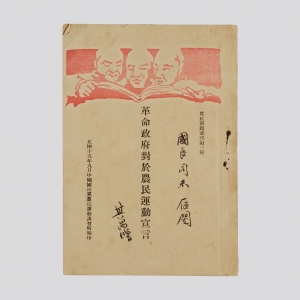 農民問題叢刊第二種
國良同志 存閱
革命政府對於農民運動宣言
民國十五年九月中國國民黨農民運動講習所編印